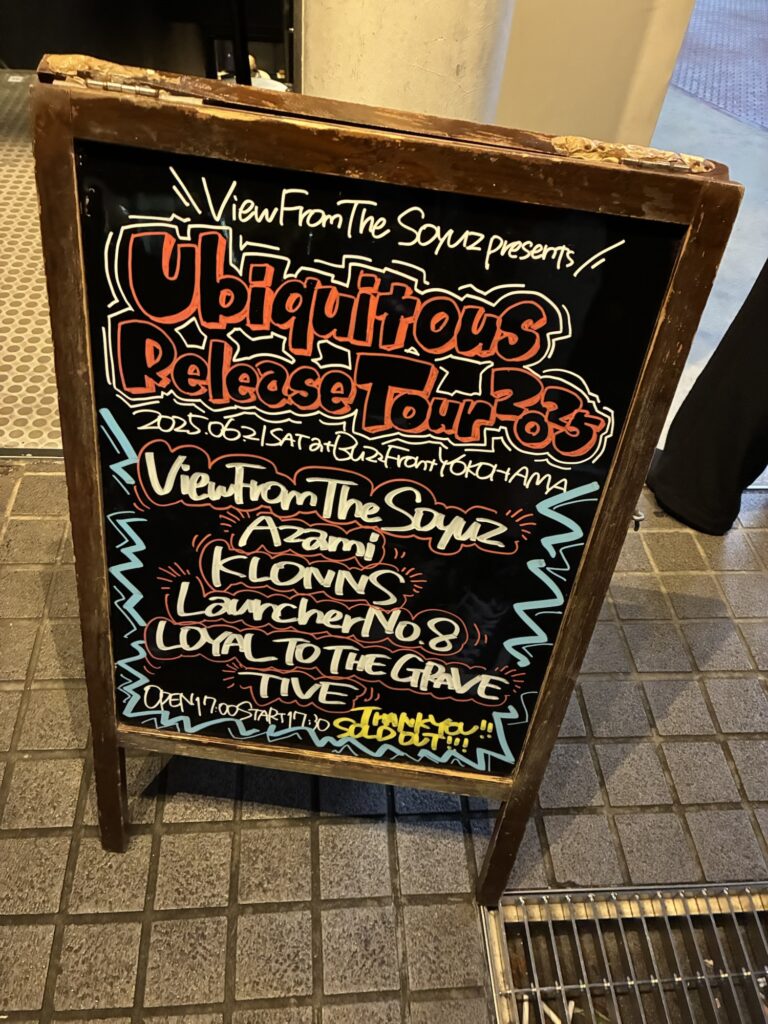 View From The Soyuz presents
Ubiquitous
Release Tour 2025
2025.06.21 SAT at Buzz Front YOKOHAMA
View From The Soyuz
Azami
KLONNS
Launcher No.8
LOYAL TO THE GRAVE
TIVE
OPEN 17:00 START 17:30
THANK YOU!!
SOLD OUT!!!